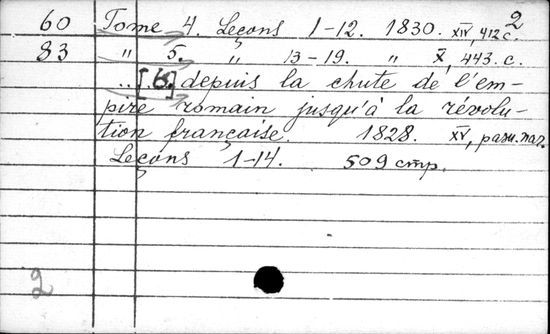 2
60 Tome 4. Leçons 1-12. 1830. XIV, 412 с.
83 " 5. " 13-19. " X, 443. с.
... [6.] depuis la chute de l'em-
pire romain jusqu'à la révolu-
tion française. 1828. XV, разн. паг.
Leçons 1-14. 509 стр.
2